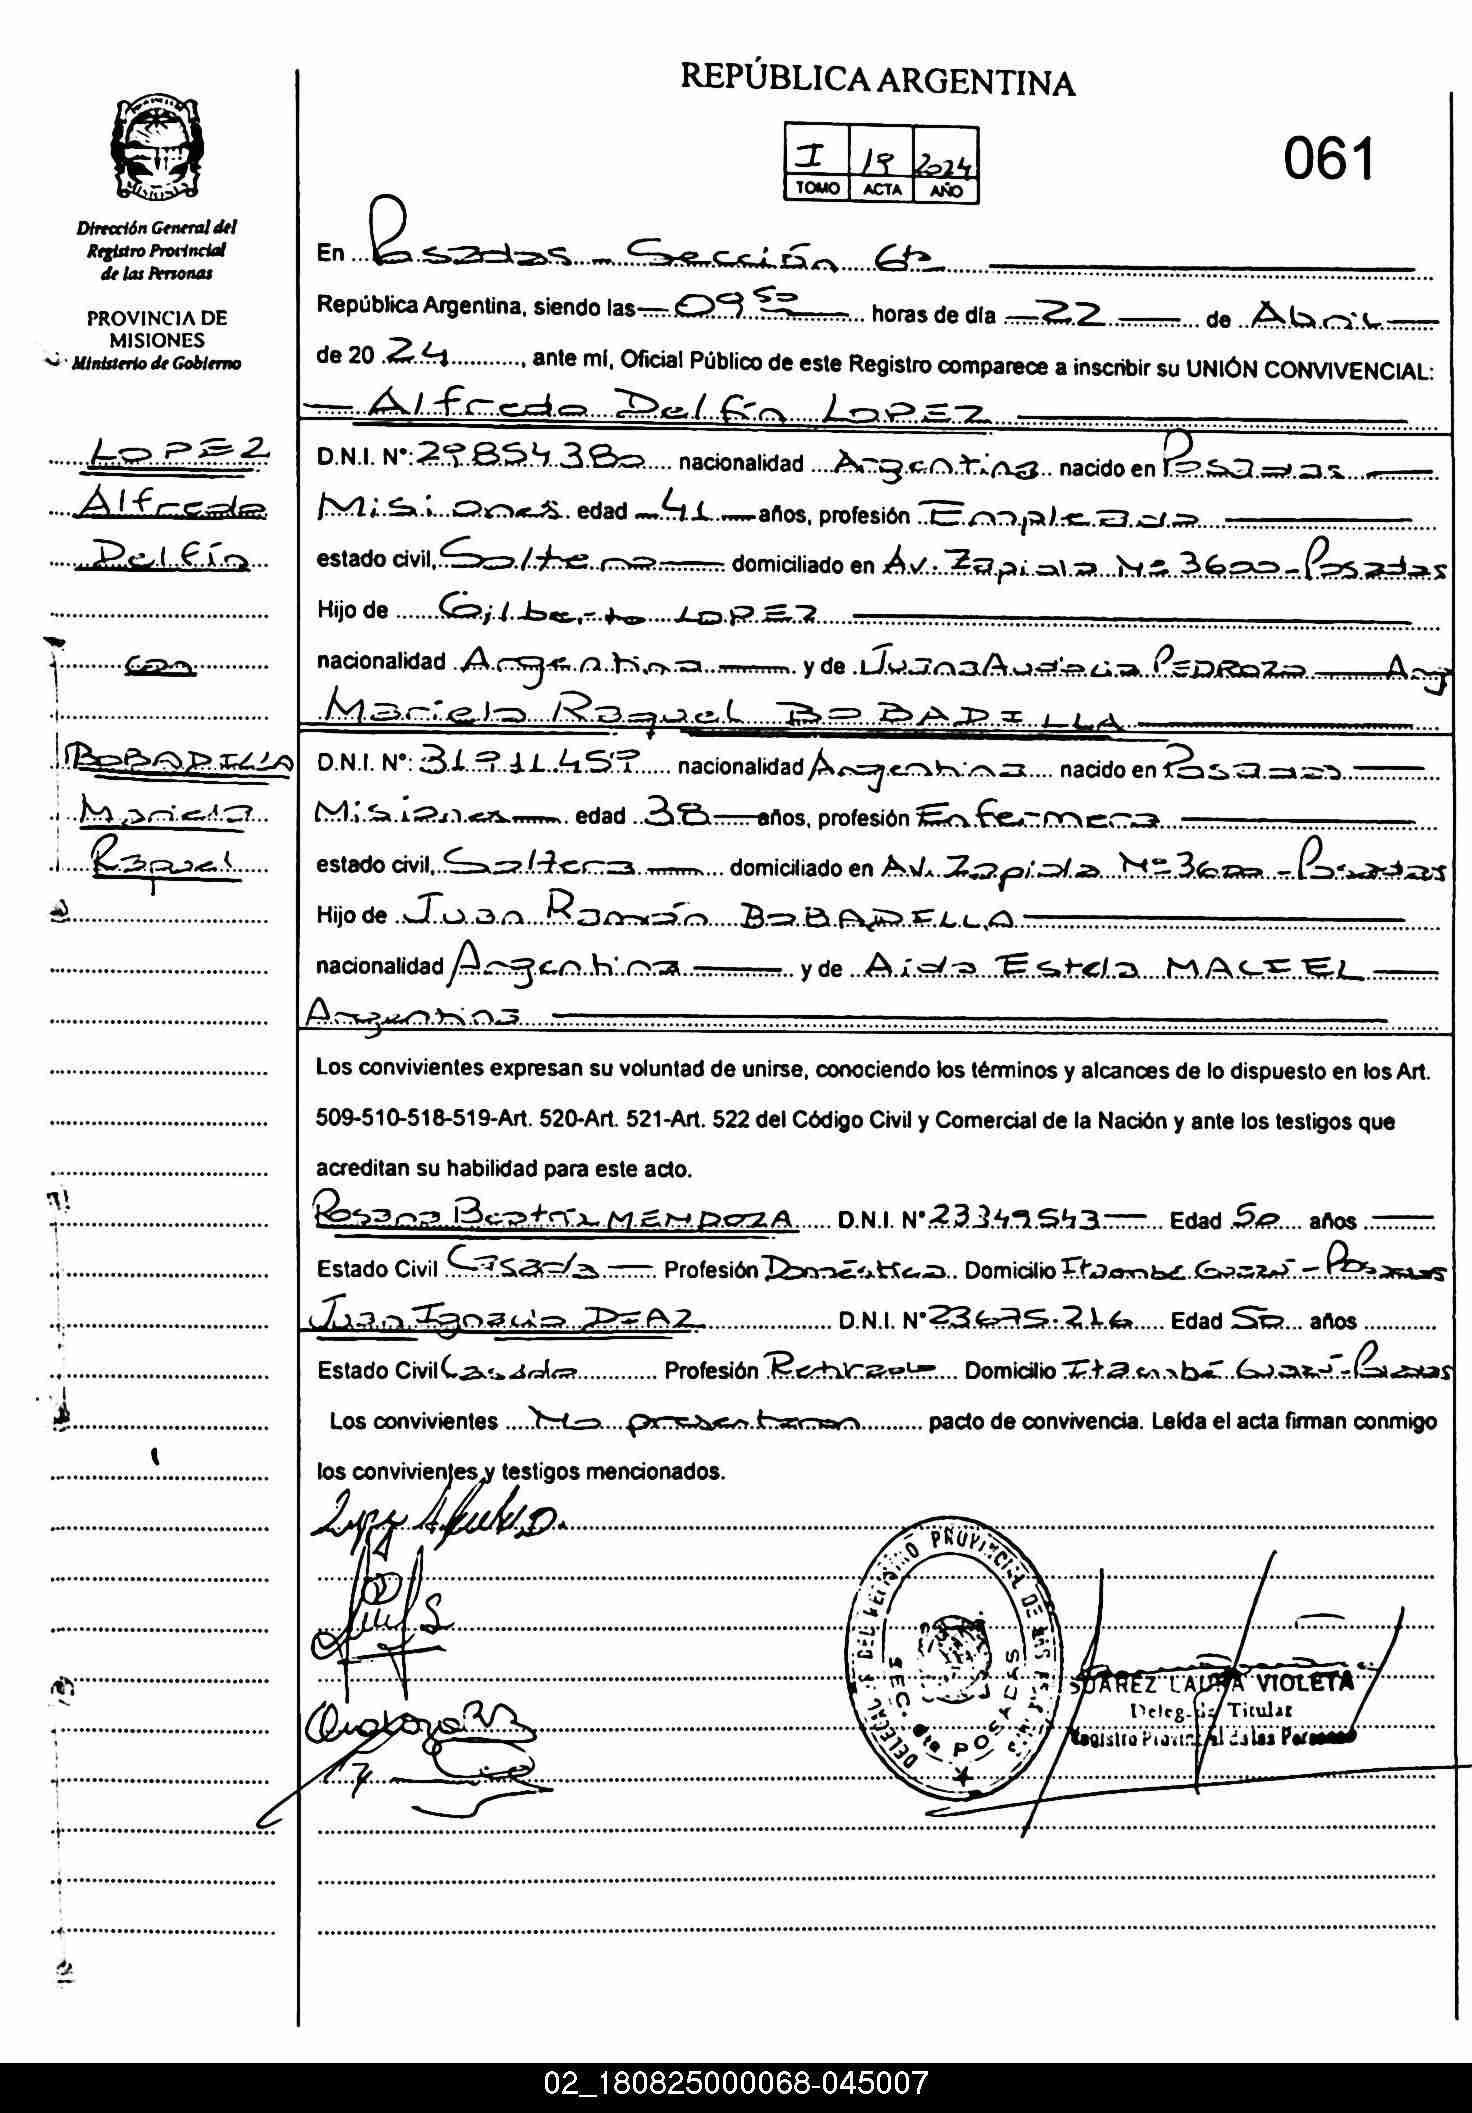 REPÚBLICA ARGENTINA
I 19 2024
TOMO ACTA AÑO
061
Dirección General del
Registro Provincial
de las Personas
PROVINCIA DE
MISIONES
Ministerio de Gobierno
LOPEZ
Alfredo
Delfín
con
BOBADILLA
Mariela
Raquel
En Posadas - Sección 6ta
República Argentina, siendo las 09 50 horas de día 22 de Abril
de 20 24, ante mí, Oficial Público de este Registro comparece a inscribir su UNIÓN CONVIVENCIAL:
Alfredo Delfín LOPEZ
D.N.I. Nº: 29854380 nacionalidad Argentina nacido en Posadas
Misiones edad 41 años, profesión Empleado
estado civil, Soltero domiciliado en Av. Zapiola Nº 3600 - Posadas
Hijo de Gilberto LOPEZ
nacionalidad Argentina y de Juana PEDROZO Arg
Mariela Raquel BOBADILLA
D.N.I. Nº: 31911457 nacionalidad Argentina nacido en Posadas
Misiones edad 38 años, profesión Enfermera
estado civil, Soltera domiciliado en Av. Zapiola Nº 3600 - Posadas
Hijo de Juan Ramón BOBADILLA
nacionalidad Argentina y de Aida Estela MACIEL
Argentina
Los convivientes expresan su voluntad de unirse, conociendo los términos y alcances de lo dispuesto en los Art.
509-510-518-519-Art. 520-Art. 521-Art. 522 del Código Civil y Comercial de la Nación y ante los testigos que
acreditan su habilidad para este acto.
Rosana Beatriz MENDOZA D.N.I. Nº 23349543 Edad 50 años
Estado Civil Casada Profesión Doméstica Domicilio Itaembé Guazú - Posadas
Juan Ignacio DIAZ D.N.I. Nº 23675.216 Edad 50 años
Estado Civil Casado Profesión Retirado Domicilio Itaembé Guazú - Posadas
Los convivientes No presentaron pacto de convivencia. Leída el acta firman conmigo
los convivientes y testigos mencionados.
DEL REGISTRO PROVINCIAL DE LAS PERSONAS
SEC. 6ta POSADAS
SUAREZ LAURA VIOLETA
Delegada Titular
Registro Provincial de las Personas
02_180825000068-045007